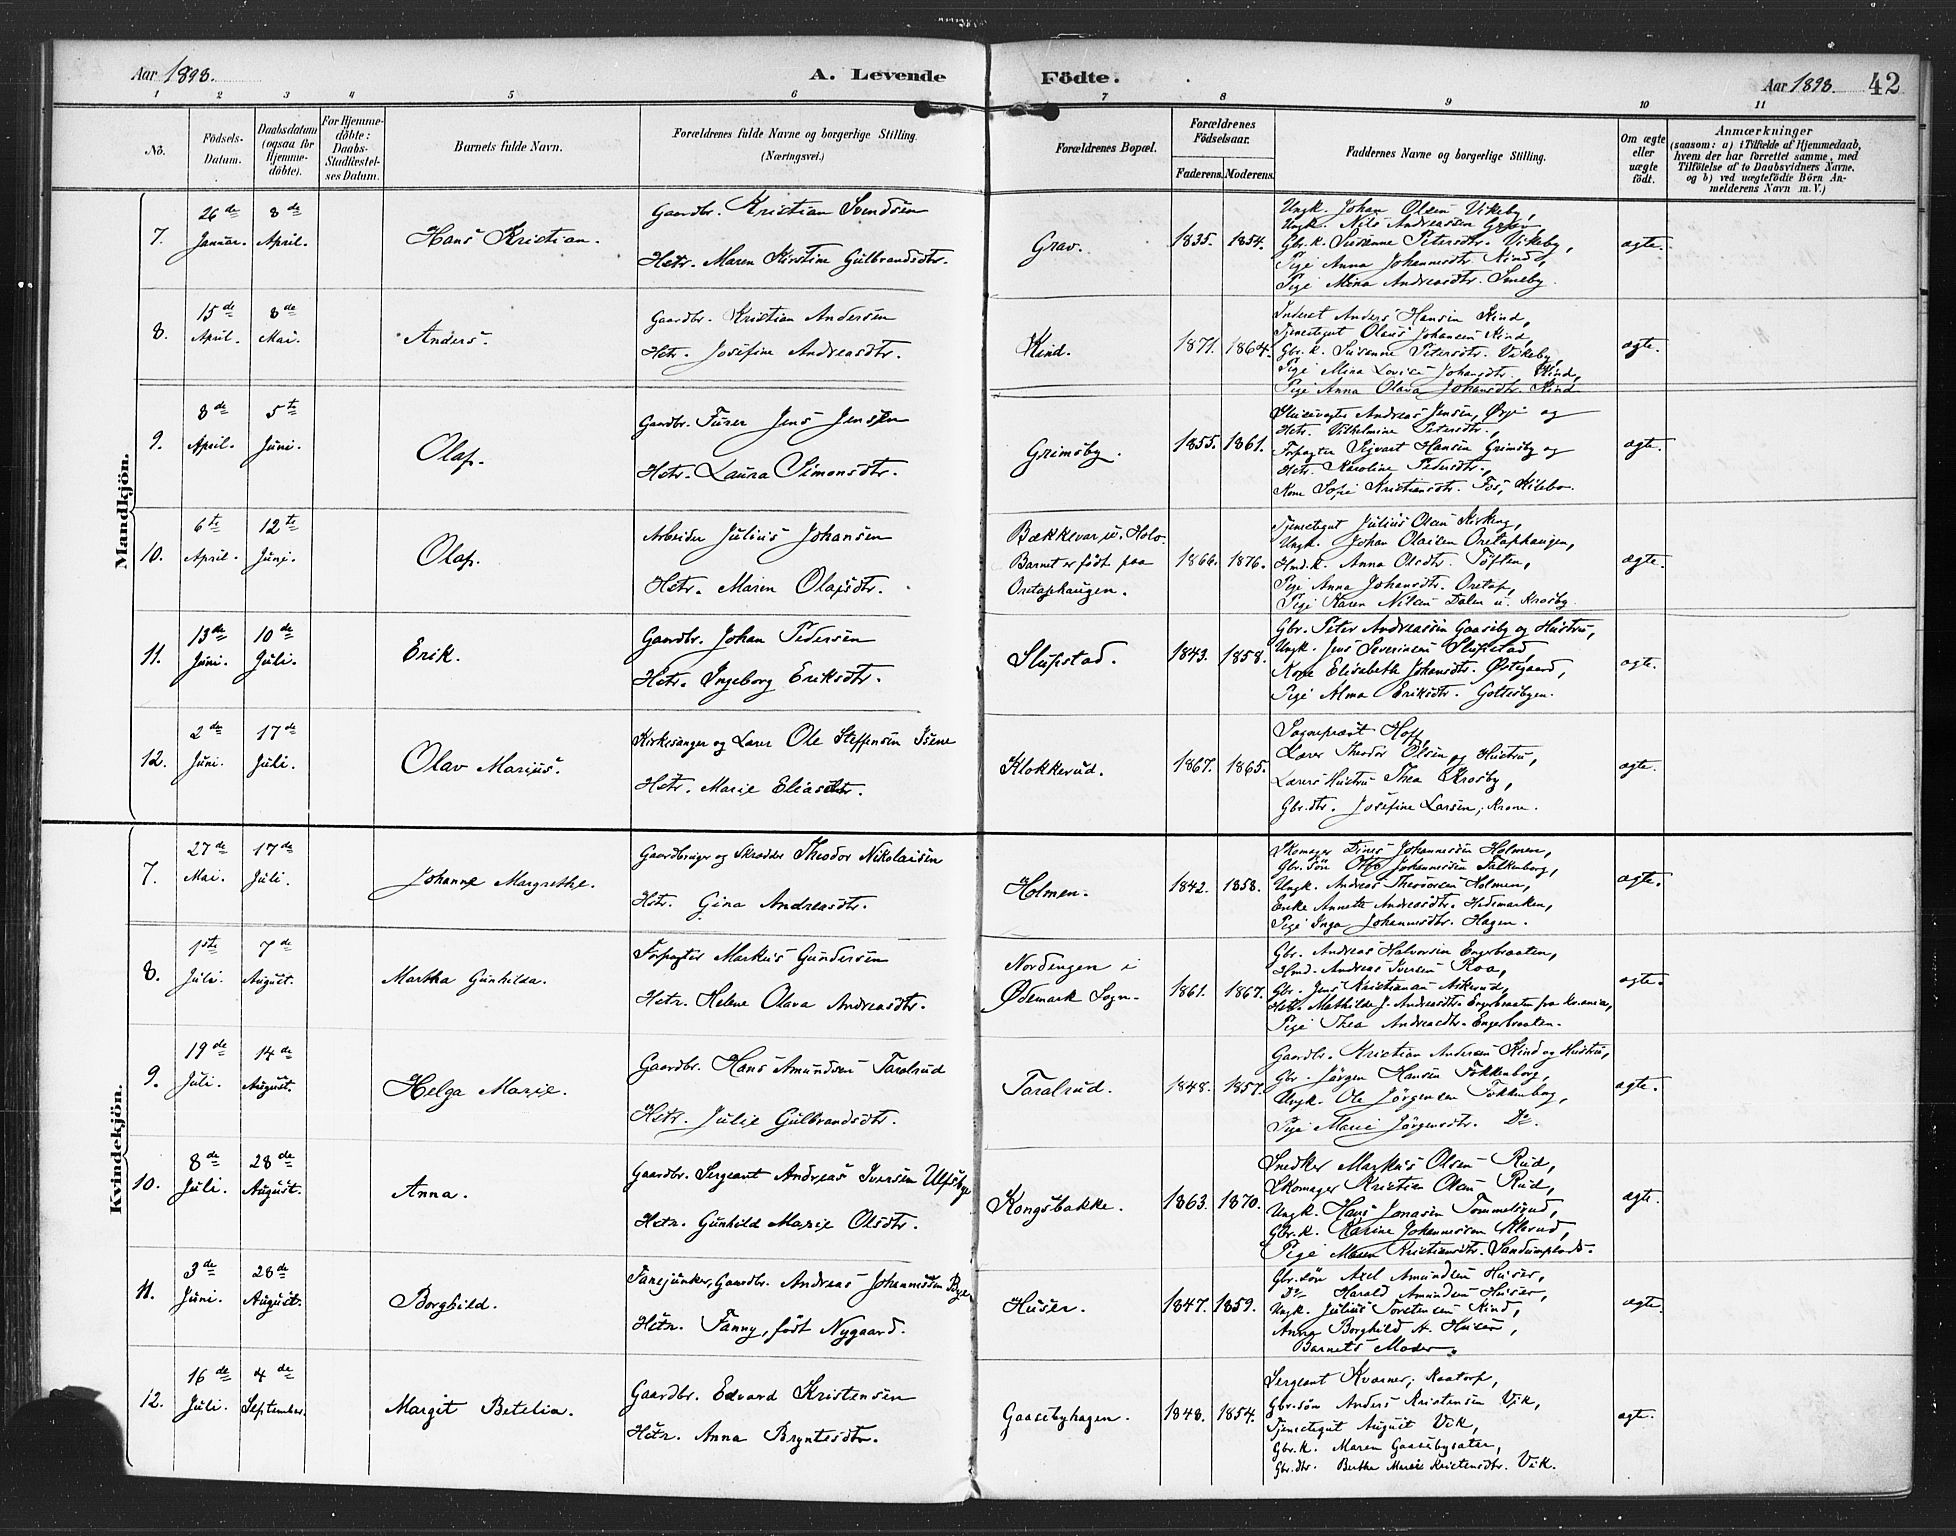 Aar 1898. A. Levende Födte. Aar 1898. 42
1 2 3 4 5 6 7 8 9 10 11
No.
Födsels-
Datum.
Daabsdatum
(ogsaa for
Hjemme-
döbte).
For Hjemme-
döbte:
Daabs-
Stadfæstel-
ses Datum.
Barnets fulde Navn.
Forældrenes fulde Navne og borgerlige Stilling.
(Næringsvei.)
Forældrenes Bopæl.
Forældrenes
Födselsaar.
Faderens. Moderens.
Faddernes Navne og borgerlige Stilling.
Om ægte
eller
uægte
födt.
Anmærkninger
(saasom: a) i Tilfælde af Hjemmedaab,
hvem der har forrettet samme, med
Tilföielse af to Daabsvidners Navne.
og b) ved uægtefödte Börn An-
melderens Navn m. V.)
Mandkjön.
7.
26de
Januar.
3de
April.
Hans Kristian.
Gaardbr. Kristian Svendsen
Hstr. Maren Kirstine Gulbrandsdtr.
Grav.
1835. 1854.
Ungk. Johan Olsen Vikeby,
Ungk. Nils Andreassen Grav
Gbr.k. Susanne Petersdtr. Vikeby,
Pige Anna Johannesdtr. Kind,
Pige Mina Andreasdtr. Smeby.
ægte.
8.
15de
April.
8de
Mai.
Anders.
Gaardbr. Kristian Andersen
Hstr. Josefine Andreasdtr.
Kind.
1871. 1864.
Inderst Anders Hansen Kind,
Tjenestegut Olaus Johansen Kind,
Gbr.k. Susanne Petersdtr. Vikeby,
Pige Mina Lovise Johansdtr. Kind,
Pige Anna Olava Johansdtr. Kind
ægte.
9.
3de
April.
5te
Juni.
Olaf.
Gaardbr. Furer Jens Jensen
Hstr. Laura Simonsdtr.
Grimsby.
1855. 1861.
Slusevogter Andreas Jensen, Ørje og
Hstr. Vilhelmine Petersdtr.,
Forpagter Sigvart Hansen Grimsby og
Hstr. Karoline Pedersdtr.,
Kone Sofie Kristiansdtr. Fos, Kilebo.
ægte.
10.
6te
April.
12te
Juni.
Olaf.
Arbeider Julius Johansen
Hstr. Maren Olafsdtr.
Bækkevar u. Holo.
Barnet er födt paa
Oretaphaugen.
1866. 1876.
Tjenestegut Julius Olsen Kirkeng,
Ungk. Johan Olaisen Oretaphaugen,
Hmd.k. Anna Olsdtr. Töften,
Pige Anna Johansdtr. Oretap,
Pige Karen Nilsen Dalen u. Krosby.
ægte.
11.
13de
Juni.
10de
Juli.
Erik.
Gaardbr. Johan Pedersen
Hstr. Ingeborg Eriksdtr.
Slupstad.
1843. 1858.
Gbr. Peter Andreassen Gaaseby og Hustru,
Ungk. Jens Severinsen Slupstad
Kone Elisabeth Johansdtr. Østgaard,
Pige Alma Eriksdtr. Goltesbyen.
ægte.
12.
2de
Juni.
17de
Juli.
Olav Marius.
Kirkesanger og Lærer Ole Steffensen Isene
Hstr. Marie Eliasdtr.
Klokkerud.
1867. 1865.
Sogneprest Hoff,
Lærer Theodor Olsen og Hustru,
Lærers Hustru Thea Krosby,
Gbr.dtr. Josefine Larsen, Krone.
ægte.
Kvindekjön.
7.
27de
Mai.
17de
Juli.
Johanne Margrethe.
Gaardbruger og Skrædder Theodor Nikolaisen
Hstr. Gina Andreasdtr.
Holmen.
1842. 1858.
Skomager Dines Johannessen Holmen,
Gbr.sön Olaf Johannessen Falkenborg,
Ungk. Andreas Theodorsen Holmen,
Enke Annette Andreasdtr. Hedemarken,
Pige Inga Johannesdtr. Hagen.
ægte.
8.
1ste
Juli.
7de
August.
Martha Gunhilda.
Forpagter Markus Gundersen
Hstr. Helene Olava Andreasdtr.
Nordengen i
Ødemark Sogn.
1861. 1867.
Gbr. Andreas Halvorsen Engerbraaten,
Hmd. Andreas Iversen Roa,
Gbr. Jens Kristiansen Askerud,
Hstr. Mathilde J. Andreasdtr. Engerbraaten fra Kr.ania,
Pige Thea Andreasdtr. Engerbraaten.
ægte.
9.
19de
Juli.
14de
August.
Helga Marie.
Gaardbr. Hans Amundsen Taralrud
Hstr. Julie Gulbrandsdtr.
Taralrud.
1848. 1857.
Gaardbr. Kristian Andersen Kind og Hustru,
Gbr. Jörgen Hansen Fokkenborg,
Ungk. Ole Jörgensen Fokkenborg,
Pige Marie Jörgensdtr. Do.
ægte.
10.
8de
Juli.
28de
August.
Anna.
Gaardbr. Sergeant Andreas Iversen Ulfsbye
Hstr. Gunhild Marie Olsdtr.
Kongsbakke.
1863. 1870.
Snedker Markus Olsen Rud,
Skomager Kristian Olsen Rud,
Ungk. Hans Jonasen Tommelsrud,
Gbr.k. Karine Johannessen Alerud,
Pige Maren Kristiansdtr. Sandumplads.
ægte.
11.
3de
Juni.
28de
August.
Borghild.
Fanejunker, Gaardbr. Andreas Johannessen Bøge
Hstr. Fanny, födt Nygaard.
Huser.
1847. 1859.
Gbr.sön Axel Amundsen Huser,
Do Harald Amundsen Huser,
Ungk. Julius Torstensen Kind,
Anna Borghild A. Huser,
Barnets Moder.
ægte.
12.
16de
Juli.
4de
September.
Margit Betelia.
Gaardbr. Edvard Kristensen
Hstr. Anna Bryntesdtr.
Gaasebyhagen.
1848. 1854.
Sergeant Kværner, Kaatorp,
Gbr.sön Anders Kristensen Vik,
Tjenestegut August Vik,
Gbr.k. Maren Gaasebysæter,
Gbr.dtr. Berthe Marie Kristensdtr. Vik.
ægte.